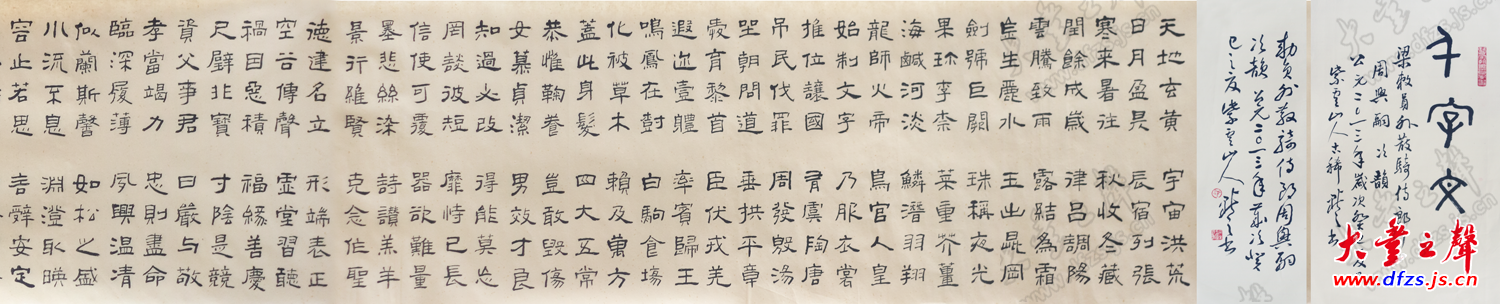 千字文
梁敕員外散騎侍郎
周興嗣次韻
公元二〇一三年歲次癸巳夏
紫雲山人古稀 书
敕員外散騎侍郎周興嗣
次韻 公元二〇一三年歲次癸
巳之夏 紫雲山人 书
天地玄黃 宇宙洪荒
日月盈昃 辰宿列張
寒來暑往 秋收冬藏
閏餘成歲 律呂調陽
雲騰致雨 露結為霜
金生麗水 玉出昆岡
劍號巨闕 珠稱夜光
果珍李柰 菜重芥薑
海鹹河淡 鱗潛羽翔
龍師火帝 鳥官人皇
始制文字 乃服衣裳
推位讓國 有虞陶唐
吊民伐罪 周發殷湯
坐朝問道 垂拱平章
愛育黎首 臣伏戎羌
遐迩壹體 率賓歸王
鳴鳳在樹 白駒食場
化被草木 賴及萬方
蓋此身髮 四大五常
恭惟鞠養 豈敢毀傷
女慕貞潔 男效才良
知過必改 得能莫忘
罔談彼短 靡恃己長
信使可覆 器欲難量
墨悲絲染 詩讚羔羊
景行維賢 克念作聖
德建名立 形端表正
空谷傳聲 虛堂習聽
禍因惡積 福緣善慶
尺璧非寶 寸陰是競
資父事君 曰嚴与敬
孝當竭力 忠則盡命
臨深履薄 夙興溫凊
似蘭斯馨 如松之盛
川流不息 淵澄取映
容止若思 言辭安定
大豐之聲
www.dfzs.js.cn